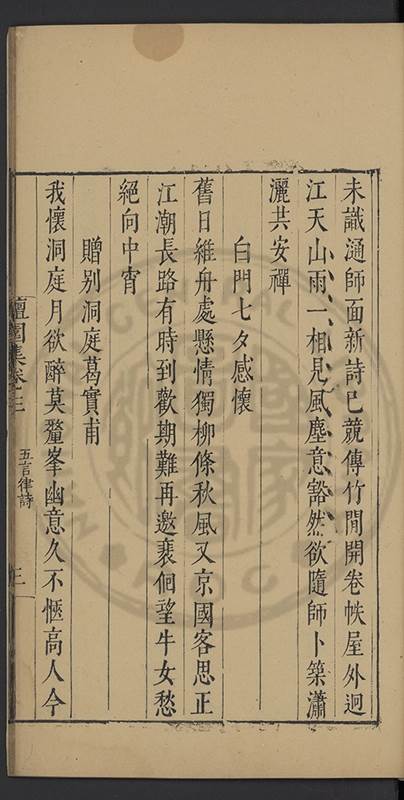 未識㴋師面新詩已競傳竹間開卷帙屋外迥
江天山雨一相見風塵意豁然欲隨師卜築瀟
灑共安禪
白門七夕感懷
舊日維舟處懸情獨柳條秋風又京國客思正
江潮長路有時到歡期難再邀裵佪望牛女愁
絕向中宵
贈别洞庭葛實甫
我懷洞庭月欲醉莫釐峯幽意久不愜高人今
檀園集卷二
五言律詩
三